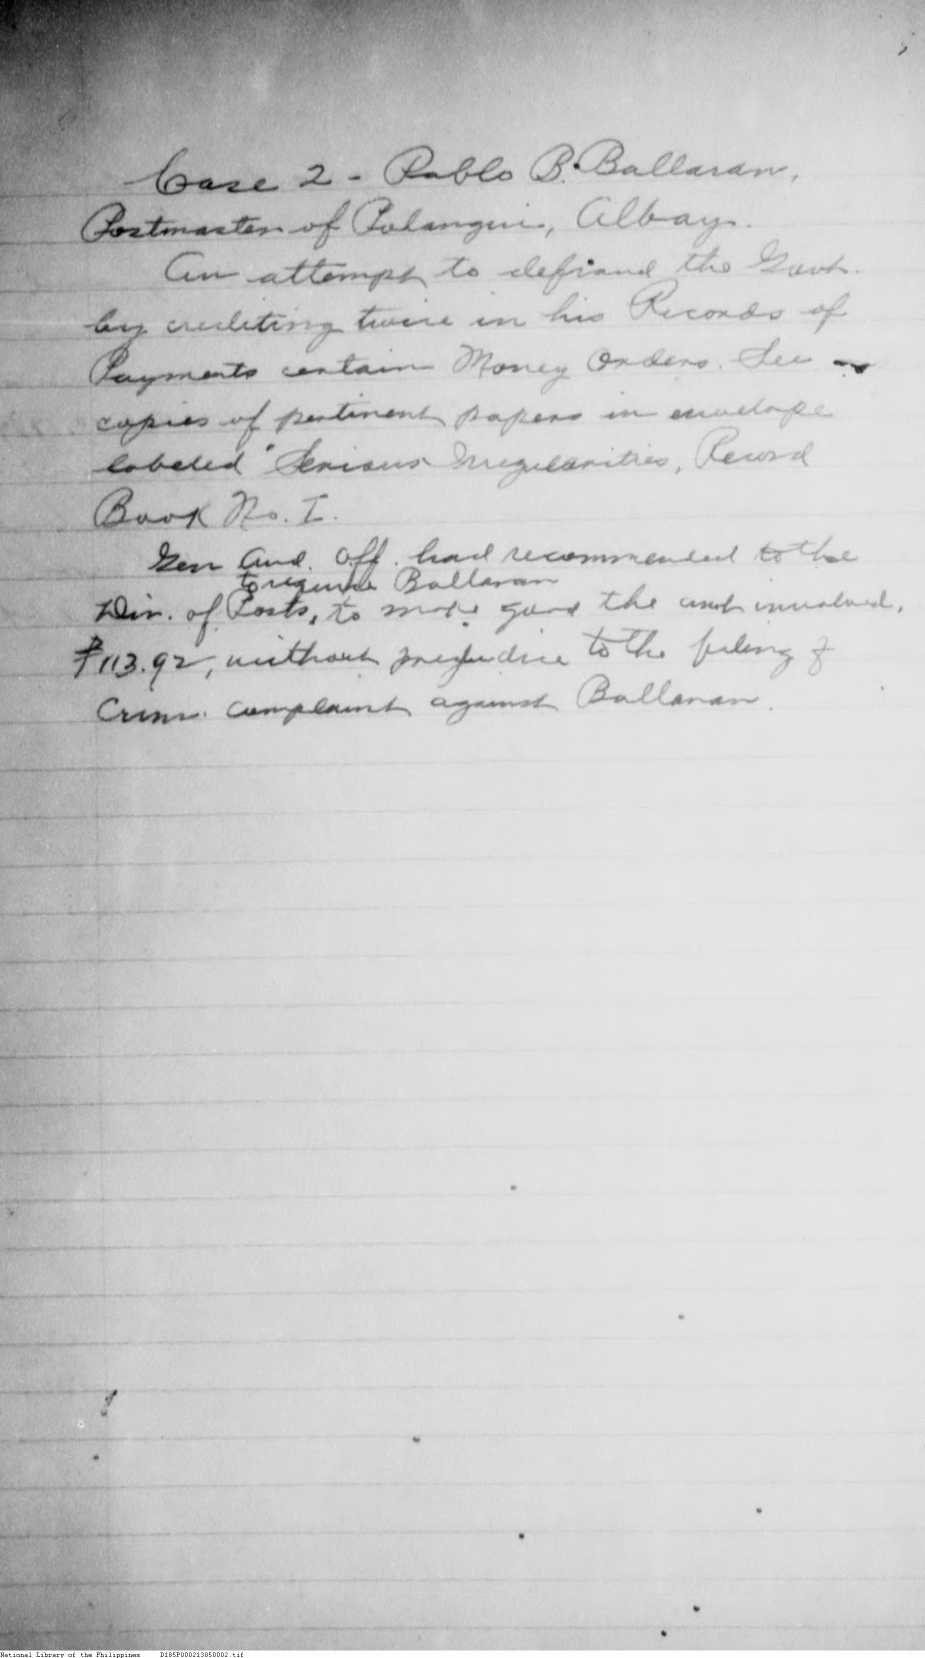 Case 2 - Pablo B. Ballaran,
Postmaster of Polangui, Albay.
An attempt to defraud the Govt.
by crediting twice in his Records of
Payments certain Money Orders. See
copies of pertinent papers in envelope
labeled "Serious Irregularities, Record
Book No. I.
Gen Aud. Off. had recommended to the
to require Ballaran
Div. of Posts, to make good the amt involved,
₱113.92, without prejudice to the filing of
Crim. complaint against Ballaran.
National Library of the Philippines D185P000213850002.tif